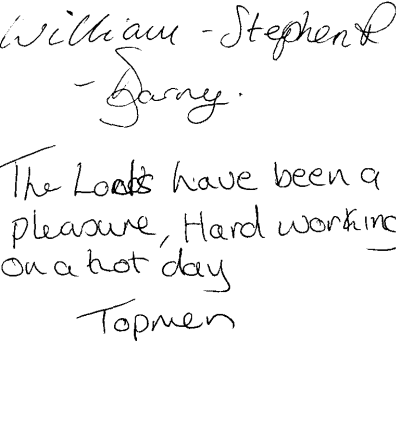 William - Stephen &
- Barny.
The Lads have been a
pleasure, Hard working
on a hot day
Topmen